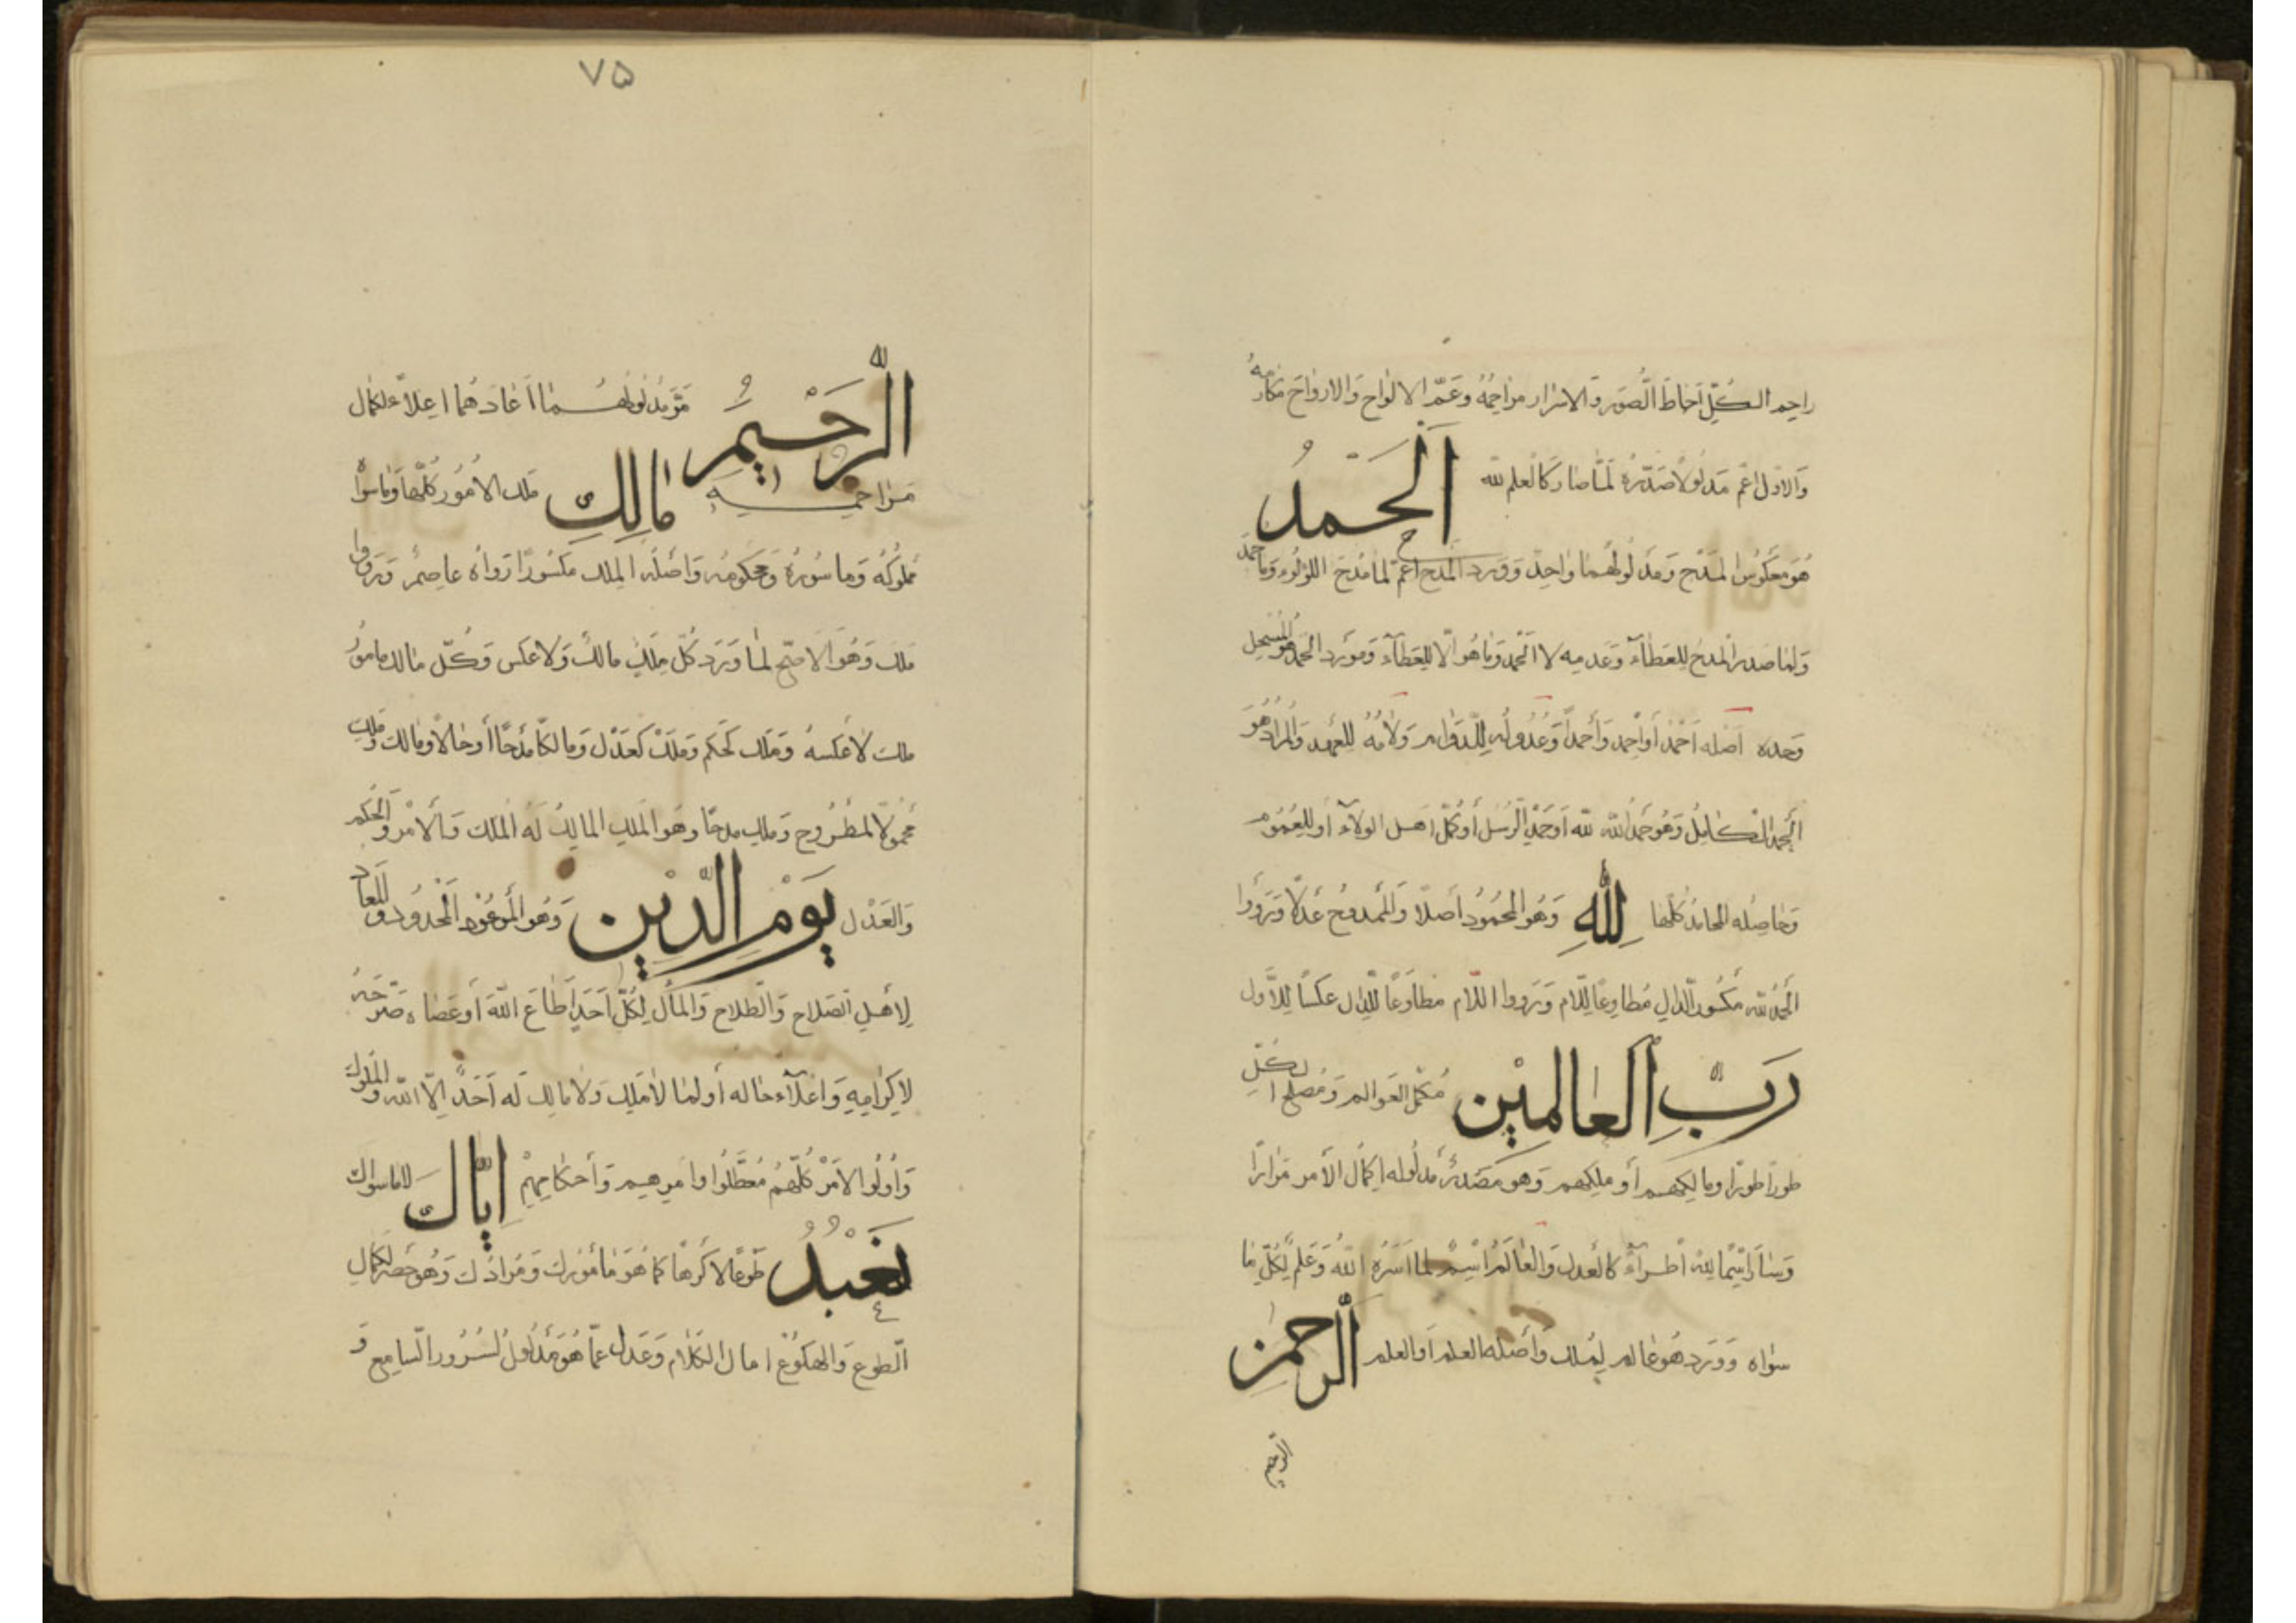 راحم الكل أحاط الصور والاسرار مراحمه وعم الالواح والارواح مكارمه
والاول اعم مدلولا صدره لما صار كالعلم لله اَلْحَمْدُ
هو معكوس المدح ومدلولهما واحد وورد المدح اعم لما مدح اللؤلؤ وما حمد
ولما صدر المدح للعطاء وعدمه لا الحمد وما هو الا للعطاء ومورد الحمد هو المسحل
وحده اصله احمد أو احمد وأحمد وعدوله للدوام ولامه للعهد والمراد هو
الحمد الكامل وهو حمد الله لله أو حمد الرسل أو كمل اهل الولاء أو للعموم
وحاصله المحامد كلها لِلّٰهِ وهو المحمود أصلا والممدوح عدلا ورووا
الحمد لله مكسور الدال مطاوعا للام ورووا اللام مطاوعا للدال عكسا للأول
رَبِّ الْعَالَمِيْنَ مكمل العوالم ومصلح الكل
طورا طورا ومالكهم أو ملكهم وهو مصدر مدلوله اكمال الأمر مرارا
وسار اسما لله اطراء كالعدل والعالم اسم لما اسره الله وعلم لكل ما
سواه وورد هو عالم لملك وأصله العلم أو العلم الرَّحْمٰنِ
الرحيم
٧۵
الرَّحِيْمِ مر مدلولهما أعادهما اعلاء لكمال
مراحمه مَالِكِ ملك الأمور كلها وما سواه
مملوكه ومأسوره ومحكومه وأصله الملك مكسورا رواه عاصم ورووا
ملك وهو الاصح لما ورد كل ملك مالك ولا عكس وكل مالك مأمور
ملك لا عكسه وملك كحكم وملك كعدل ومالكا مدحا أو حالا ومالك وملك
محمولا لمطروح وملك مدحا وهو الملك المالك له الملك والأمر والحكم
والعدل يَوْمِ الدِّيْنِ وهو الموعود المحدود والمعاد
لأهل الصلاح والطلاح والمآل لكل أحد أطاع الله أو عصاه صرحه
لاكرامه واعلاء حاله أو لما لا ملك ولا مالك له أحد الا الله والملوك
وأولوا الامر كلهم معطلوا أوامرهم وأحكامهم إِيَّاكَ لا ما سواك
نَعْبُدُ طوعا لا كرها كما هو مأمورك ومرادك وهو حصر لكمال
الطوع والهكوع امال الكلام وعدل عما هو مدلول لسرور السامع و